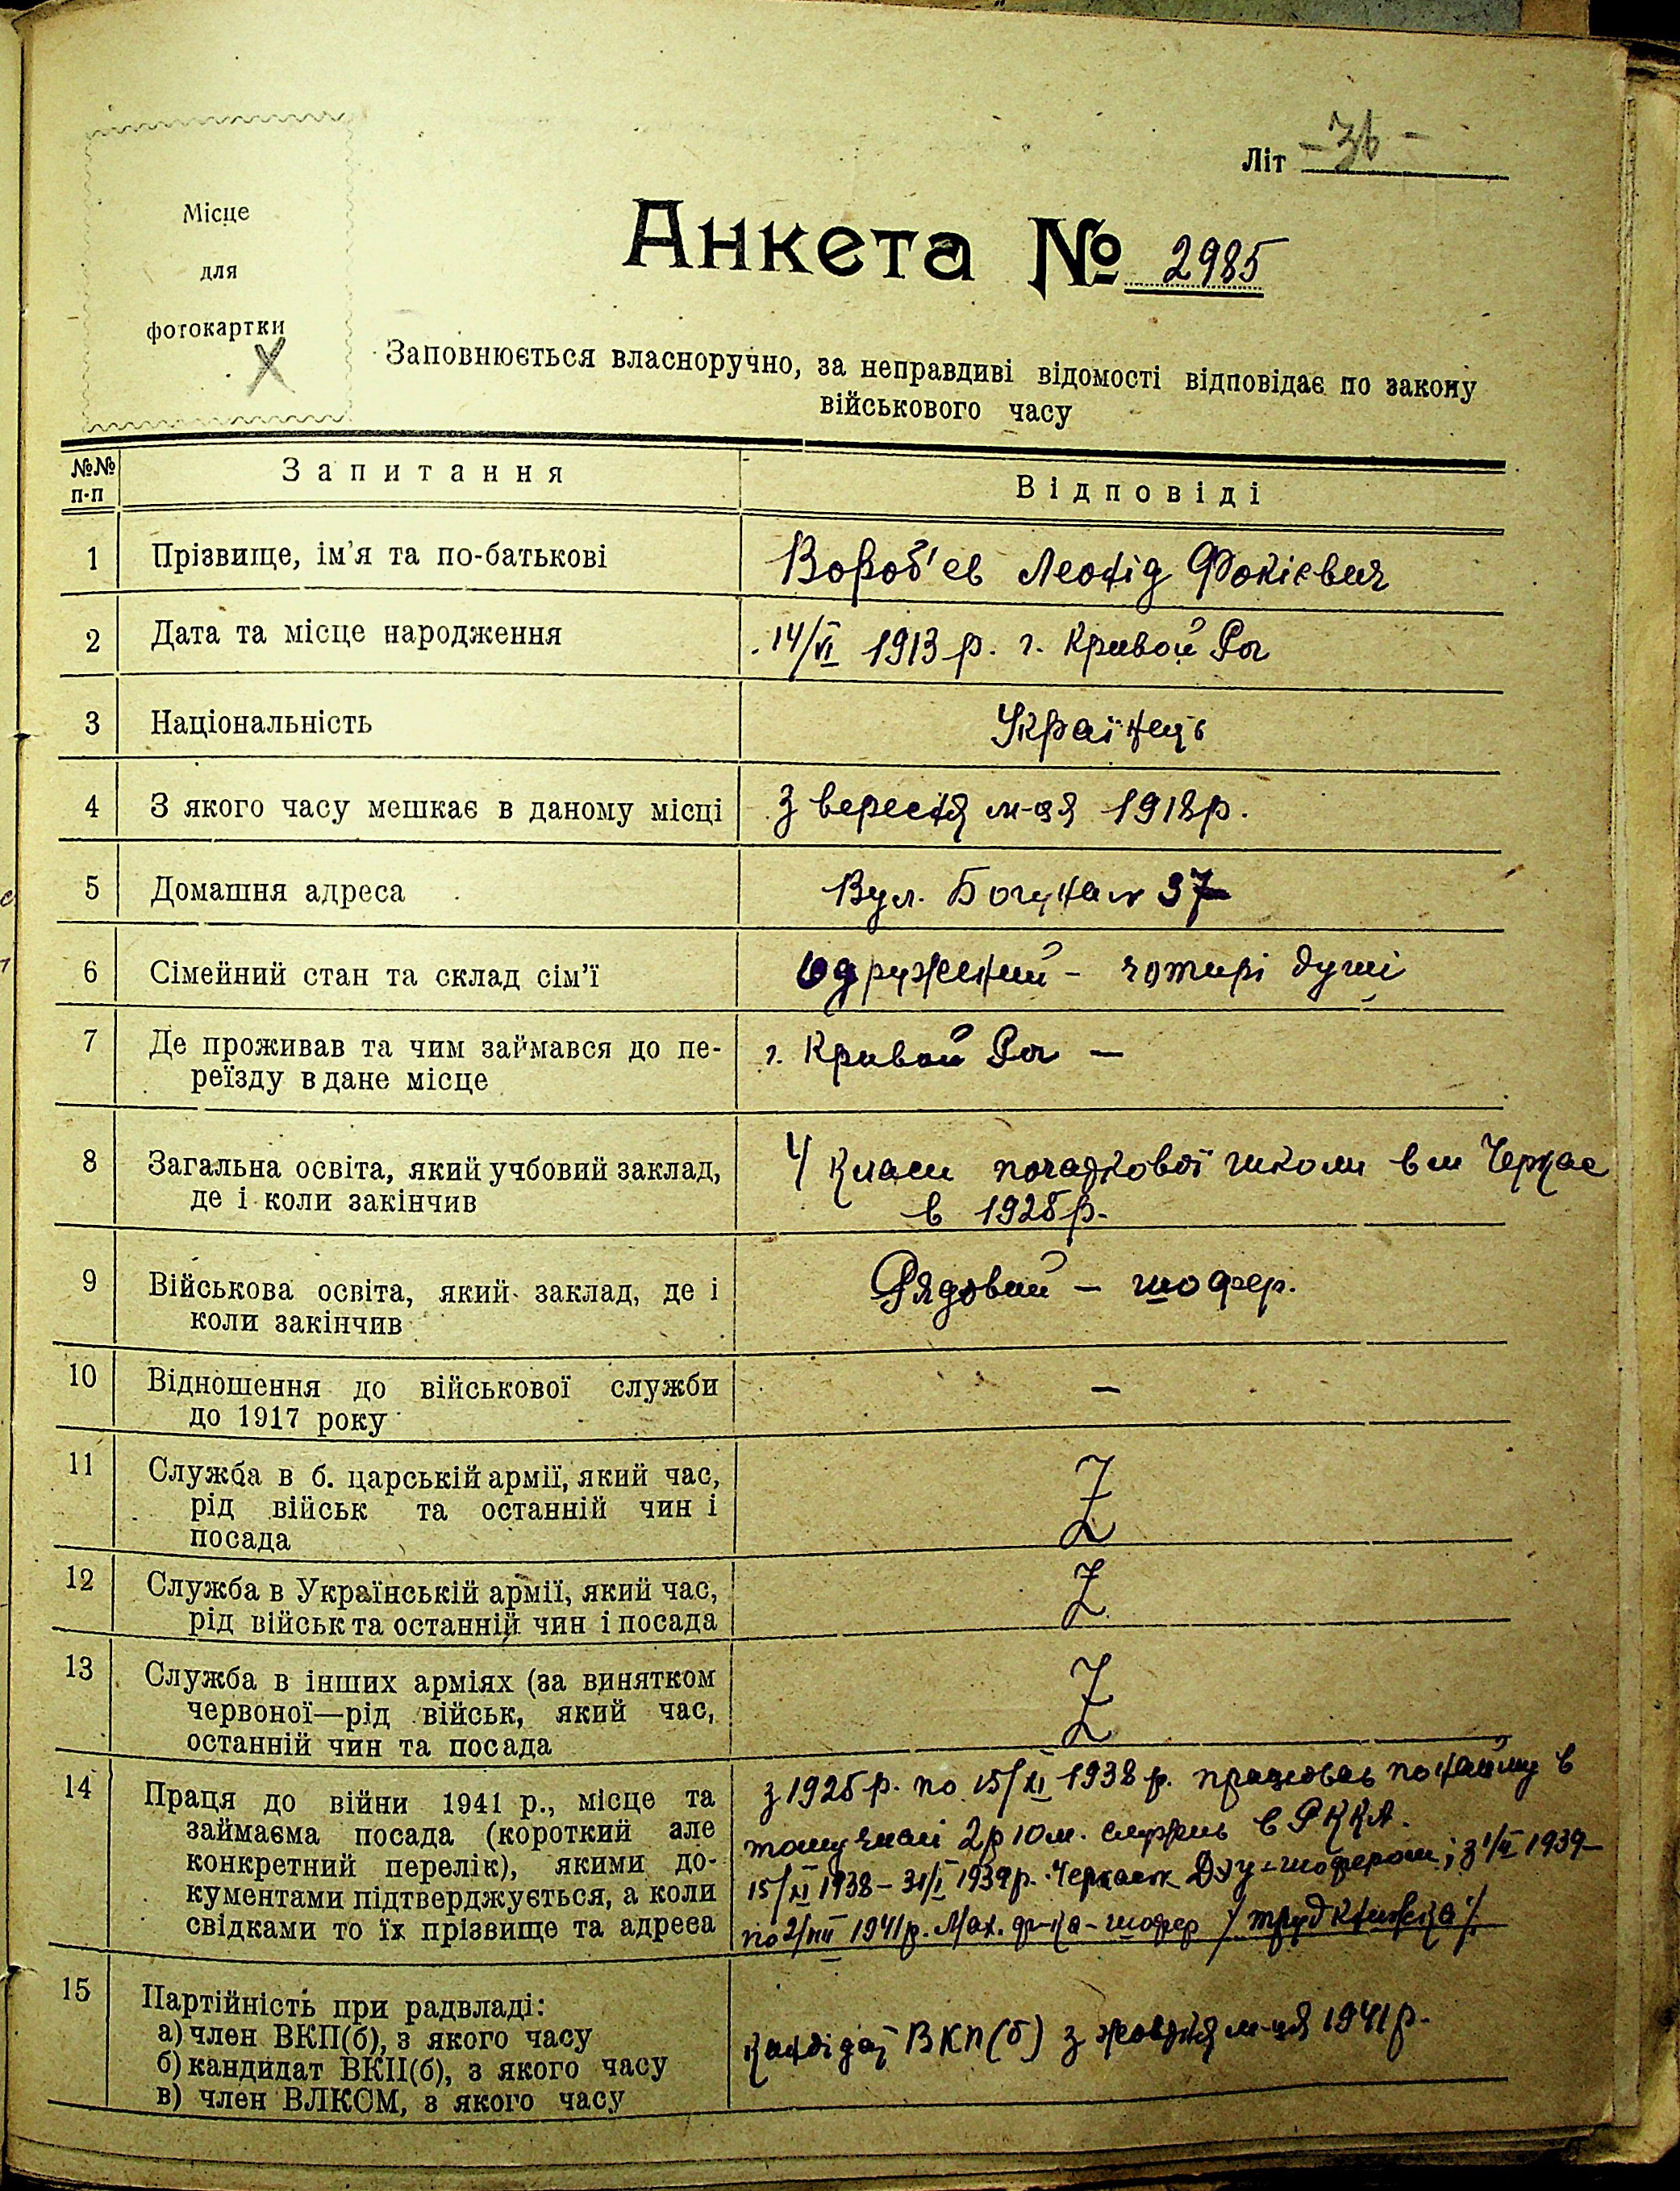 Літ - 36 -
Місце
для
фотокартки
Х
Анкета № 2985
Заповнюється власноручно, за неправдиві відомості відповідає по закону
військового часу
№№ п-п
Запитання
Відповіді
1
Прізвище, ім'я та по-батькові
Вороб'ев Леонід Фокієвич
2
Дата та місце народження
14/VI 1913 р. г. Кривой Рог
3
Національність
Українець
4
З якого часу мешкає в даному місці
З вересня м-ця 1918 р.
5
Домашня адреса
Вул. Богуна № 37
6
Сімейний стан та склад сім'ї
Одружений - чотирі душі
7
Де проживав та чим займався до пе-
реїзду в дане місце
г. Кривой Рог —
8
Загальна освіта, який учбовий заклад,
де і коли закінчив
4 класи початкової школи в м Черкас
в 1925 р.
9
Військова освіта, який заклад, де і
коли закінчив
Рядовий - шофер.
10
Відношення до військової служби
до 1917 року
—
11
Служба в б. царській армії, який час,
рід військ та останній чин і
посада
Z
12
Служба в Українській армії, який час,
рід військ та останній чин і посада
Z
13
Служба в інших арміях (за винятком
червоної—рід військ, який час,
останній чин та посада
Z
14
Праця до війни 1941 р., місце та
займаєма посада (короткий але
конкретний перелік), якими до-
кументами підтверджується, а коли
свідками то їх прізвище та адреса
з 1925 р. по 15/XI 1938 р. працював по найму в
тому числі 2 р 10 м. служив в РККА.
15/XI 1938 - 31/I 1939 р. Черкаськ ДЭУ - шофером; з 1/II 1939 -
по 2/VIII 1941 р. Мах. ф-ка - шофер / труд книжка /
15
Партійність при радвладі:
а) член ВКП(б), з якого часу
б) кандидат ВКП(б), з якого часу
в) член ВЛКСМ, з якого часу
Кандідат ВКП(б) з жовтня м-ця 1941 р.